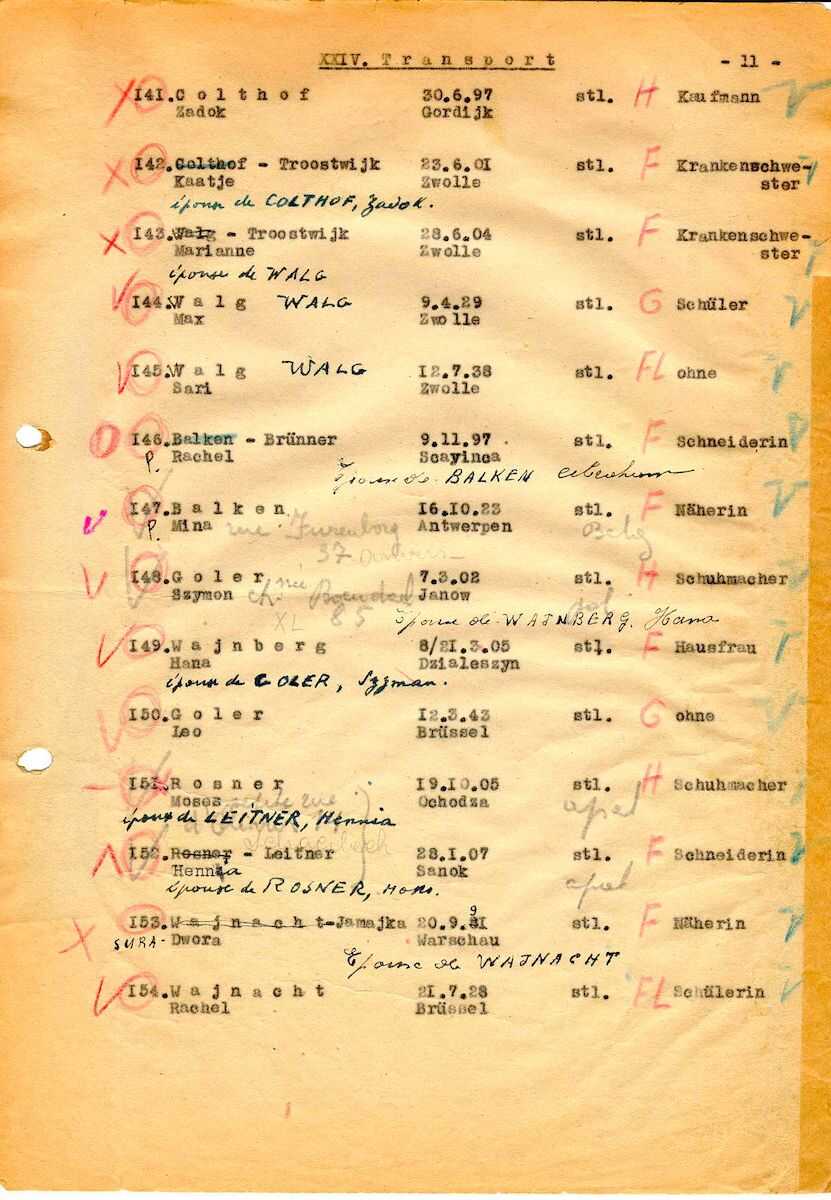 XXIV. Transport - 11 -
141. Colthof 30.6.97 stl. H Kaufmann
Zadok Gordijk
142. Colthof - Troostwijk 23.6.01 stl. F Krankenschwe-
Kaatje Zwolle ster
épouse de COLTHOF, Zadok.
143. Walg - Troostwijk 28.6.04 stl. F Krankenschwe-
Marianne Zwolle ster
épouse de WALG
144. Walg WALG 9.4.29 stl. G Schüler
Max Zwolle
145. Walg WALG 12.7.38 stl. FL ohne
Sari Zwolle
146. Balken - Brünner 9.11.97 stl. F Schneiderin
P. Rachel Scayinca
Epouse de BALKEN
147. Balken 16.10.23 stl. F Näherin
P. Mina rue Antwerpen Belg
37
148. Goler née 7.3.02 stl. H Schuhmacher
Szymon Janow
XL 85 Epouse de WAJNBERG, Hana
149. Wajnberg 8/21.3.05 stl. F Hausfrau
Hana Dzialeszyn
épouse de GOLER, Szyman.
150. Goler 12.3.43 stl. G ohne
Leo Brüssel
151. Rosner 19.10.05 stl. H Schuhmacher
Moses rue Ochodza apat
épouse de LEITNER, Hennia
152. Rosner - Leitner 28.1.07 stl. F Schneiderin
Hennia Sanok apat
épouse de ROSNER, Mos.
153. Wajnacht-Jamajka 20.9.91 stl. F Näherin
SURA- Dwora Warschau
Epouse de WAJNACHT
154. Wajnacht 21.7.28 stl. FL Schülerin
Rachel Brüssel